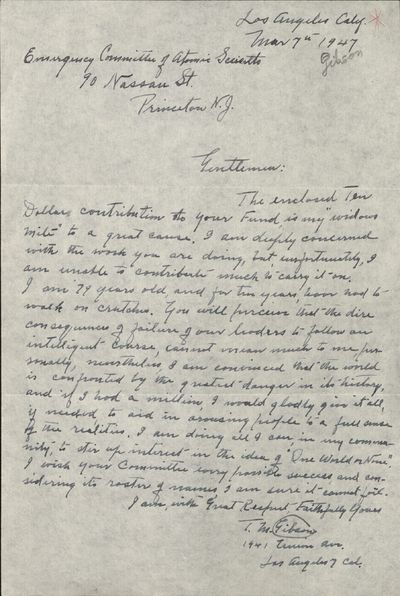 Los Angeles Caly.
Mar 7th 1947
Gibson
Emergency Committee of Atomic Scientists
90 Nassau St.
Princeton N.J.
Gentlemen:
The enclosed Ten
Dollars contribution to your Fund is my "widows
mite" to a great cause. I am deeply concerned
with the work you are doing, but unfortunately, I
am unable to contribute much to carry it on.
I am 79 years old and for ten years have had to
walk on crutches. You will perceive that the dire
consequences of failure of our leaders to follow an
intelligent course, cannot mean much to me per-
sonally, nevertheless, I am convinced that the world
is confronted by the greatest danger in its history,
and if I had a million, I would gladly give it all,
if needed to aid in arousing people to a full sense
of the realities. I am doing all I can in my commu-
nity, to stir up interest in the idea of "One World or None"
I wish your Committee every possible success and con-
sidering its roster of names I am sure it cannot fail.
I am, with Great Respect Faithfully Yours
T. M. Gibson
1941 Ave.
Los Angeles 7 Cal.